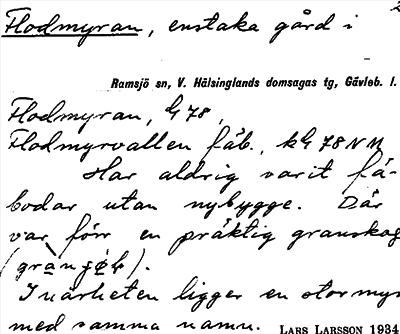 Flodmyran, enstaka gård i
Ramsjö sn, V. Hälsinglands domsagas tg, Gävleb. l.
Flodmyran, G 78,
Flodmyrvallen fäb., kG 78 NM
Har aldrig varit fä-
bodar utan nybygge. Där
var förr en präktig granskog
(
I närheten ligger en stor myr
med samma namn. LARS LARSSON 1934